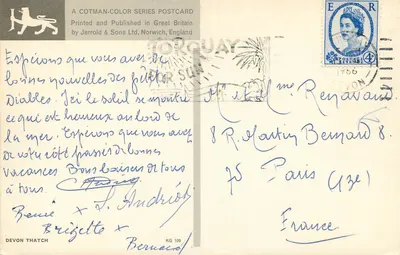 A COTMAN-COLOR SERIES POSTCARD
Printed and Published in Great Britain
by Jarrold & Sons Ltd. Norwich, England
Espérons que vous avez de
bonnes nouvelles des petits
Diables. Ici le soleil se montre
ce qui est heureux au bord de
la mer. Espérons que vous avez
de votre côté passé de bonnes
vacances. Bons baisers de tous
à tous.
S. Andrió
René x
Brigette x
Bernard
DEVON THATCH
KD 109
TORQUAY
FOR SUN
E R
1966
DEVON
M. et Mme Renavand
8 R. Martin Bernard 8
75 Paris (13e)
France